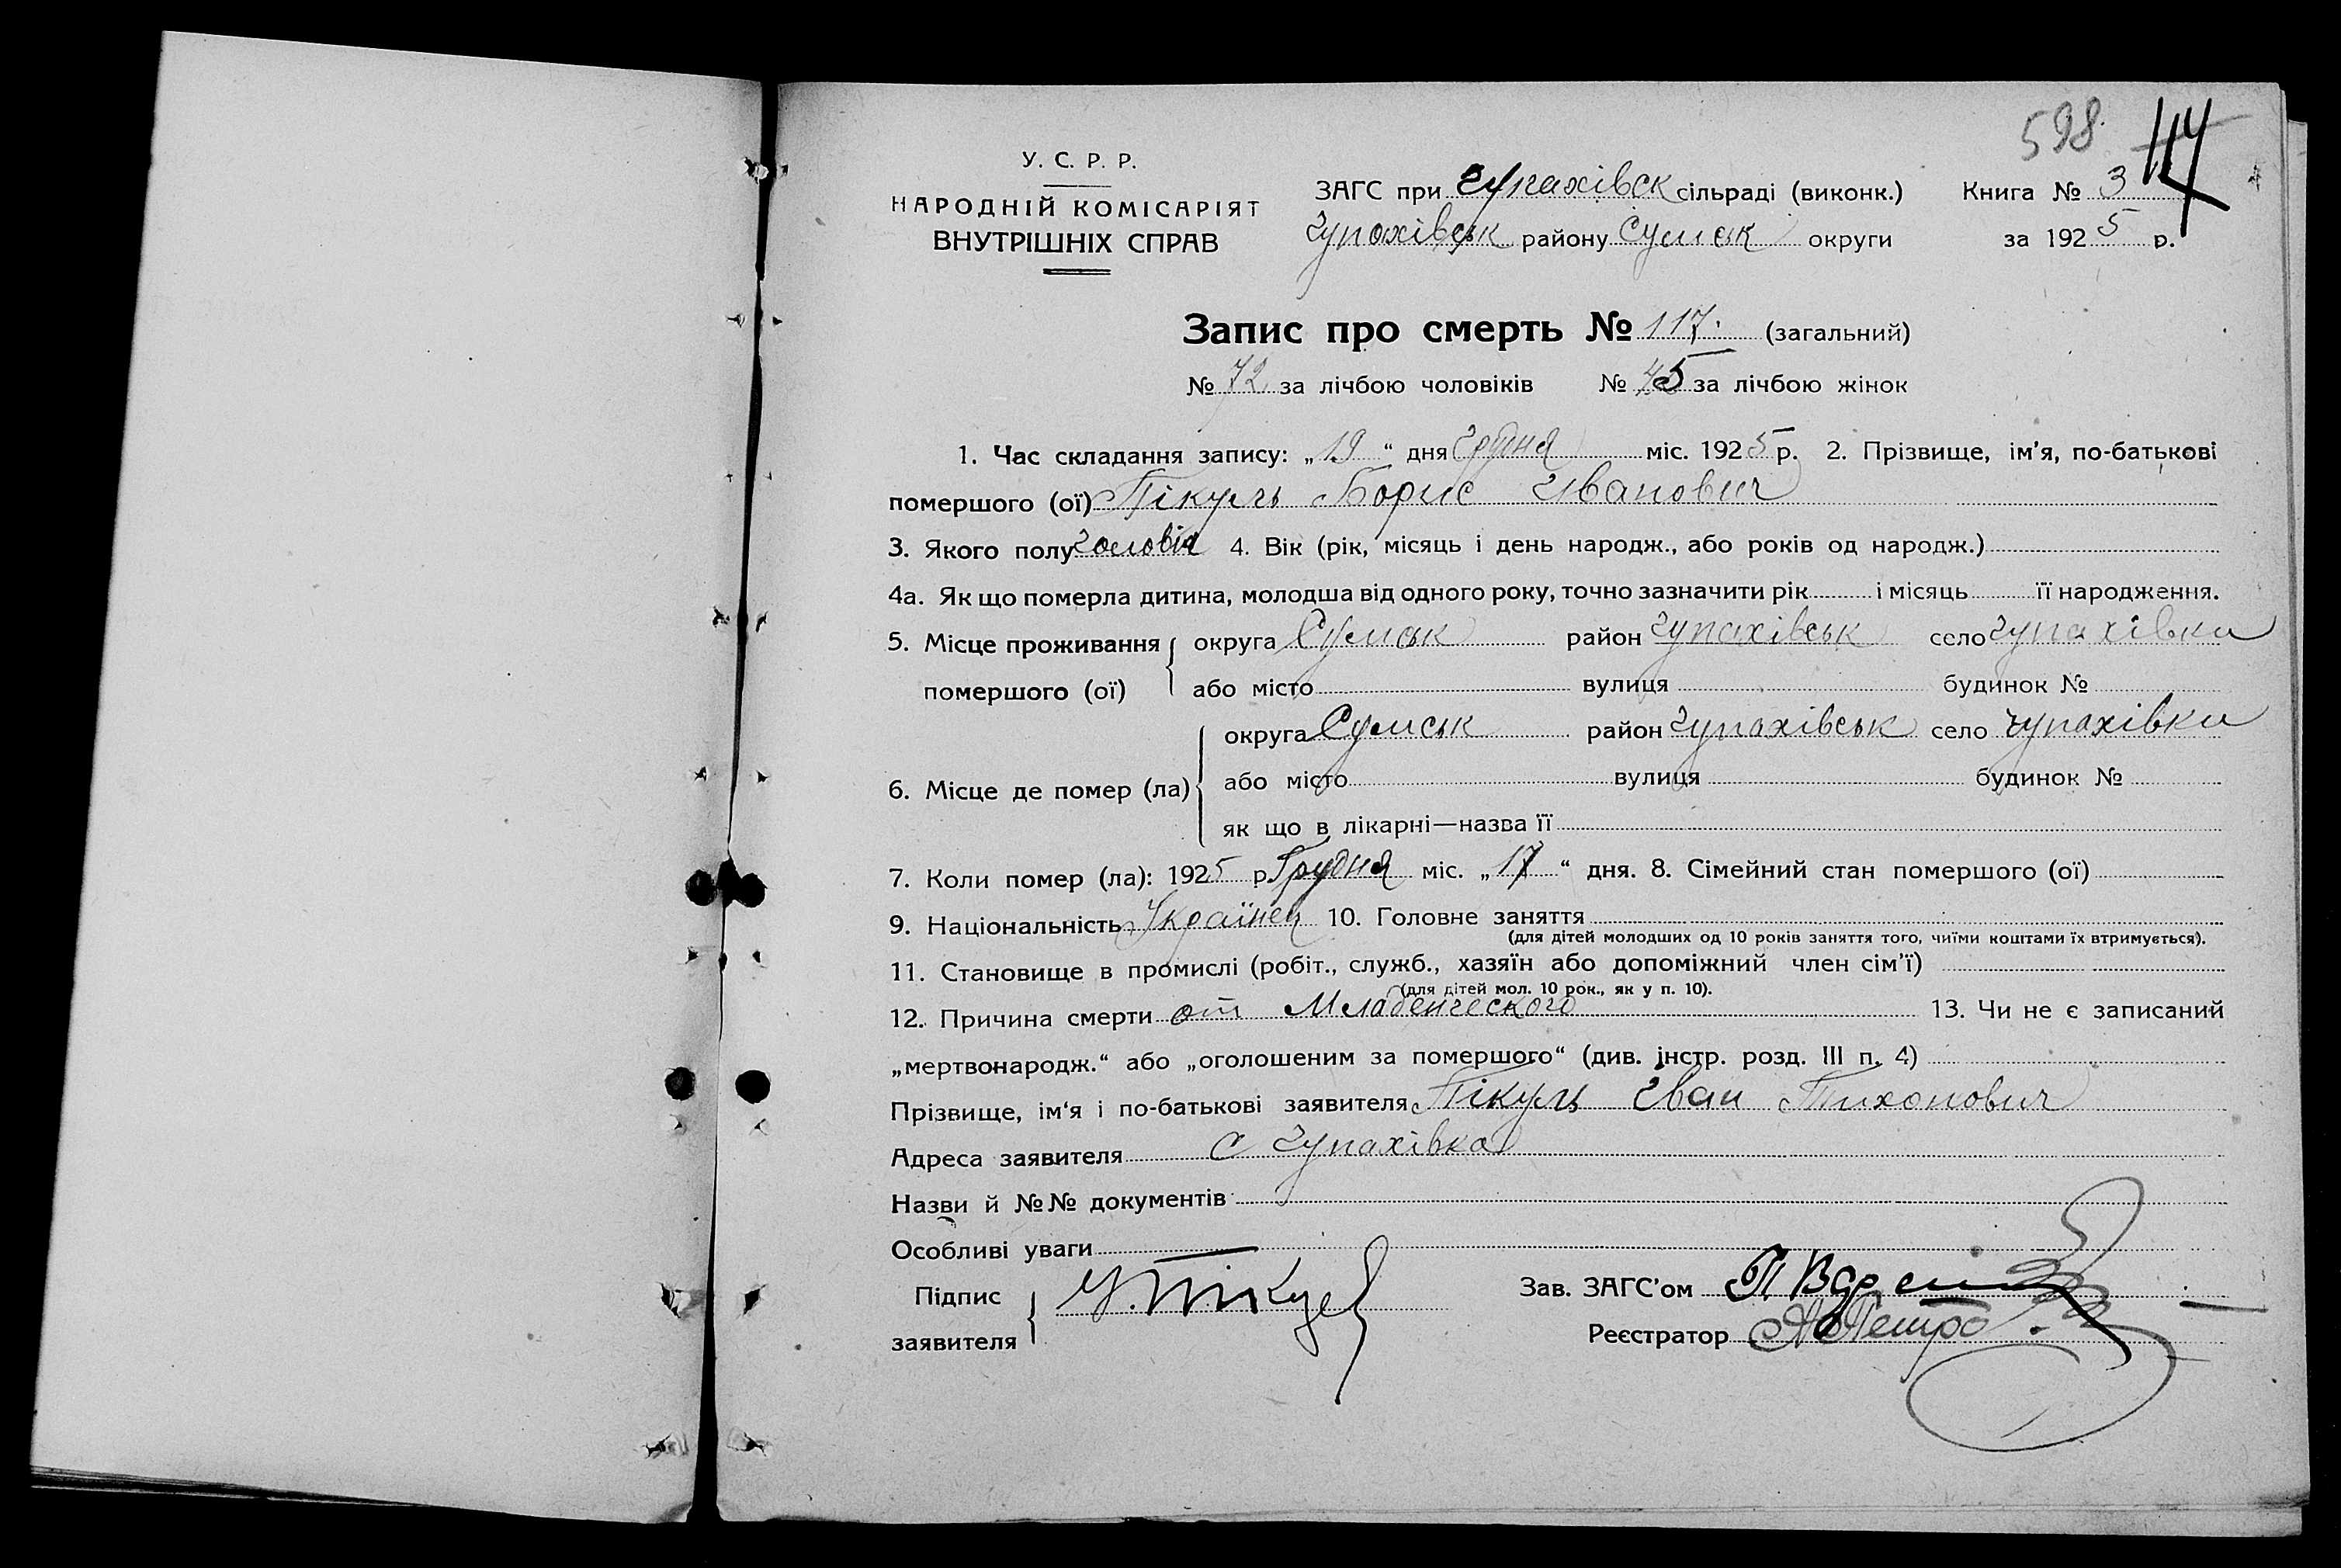 598 114
У. С. Р. Р.
НАРОДНІЙ КОМІСАРІЯТ
ВНУТРІШНІХ СПРАВ
ЗАГС при Чупахівск сільраді (виконк.) Книга № 3
Чупахівськ району Сумськ округи за 1925 р.
Запис про смерть № 117. (загальний)
№ 72 за лічбою чоловіків № 45 за лічбою жінок
1. Час складання запису: „19“ дня Грудня міс. 1925 р. 2. Прізвище, ім’я, по-батькові
помершого (ої) Пікуль Борис Іванович
3. Якого полу Чоловік 4. Вік (рік, місяць і день народж., або років од народж.)
4а. Як що померла дитина, молодша від одного року, точно зазначити рік і місяць її народження.
5. Місце проживання округа Сумськ район Чупахівськ село Чупахівки
помершого (ої) або місто вулиця будинок №
округа Сумськ район Чупахівськ село Чупахівки
6. Місце де помер (ла) або місто вулиця будинок №
як що в лікарні—назва її
7. Коли помер (ла): 1925 р. Грудня міс. „17“ дня. 8. Сімейний стан помершого (ої)
9. Національність Українец 10. Головне заняття
(для дітей молодших од 10 років заняття того, чиїми коштами їх втримується).
11. Становище в промислі (робіт., служб., хазяїн або допоміжний член сім’ї)
(для дітей мол. 10 рок., як у п. 10).
12. Причина смерти от Младенческого 13. Чи не є записаний
„мертвонародж.“ або „оголошеним за помершого“ (див. інстр. розд. III п. 4)
Прізвище, ім‘я і по-батькові заявителя Пікуль Іван Тихонович
Адреса заявителя с Чупахівка
Назви й №№ документів
Особливі уваги
Підпис
заявителя
Зав. ЗАГС’ом
Реєстратор